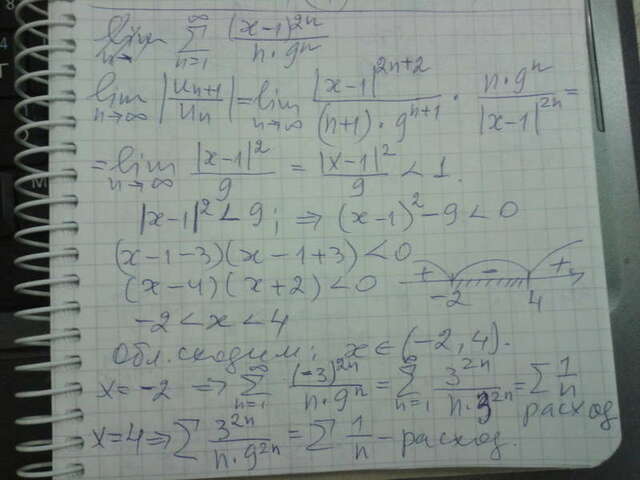 lim n→ ∑_{n=1}^{∞} (x-1)^{2n} / n·9^n
lim_{n→∞} |u_{n+1} / u_n| = lim_{n→∞} |x-1|^{2n+2} / (n+1)·9^{n+1} · n·9^n / |x-1|^{2n} =
= lim_{n→∞} |x-1|^2 / 9 = |x-1|^2 / 9 < 1.
|x-1|^2 < 9; ⇒ (x-1)^2 - 9 < 0
(x-1-3)(x-1+3) < 0
(x-4)(x+2) < 0 + - + -2 4
-2 < x < 4
Обл. сходим; x ∈ (-2, 4).
x = -2 ⇒ ∑_{n=1}^{∞} (-3)^{2n} / n·9^n = ∑_{n=1}^{∞} 3^{2n} / n·3^{2n} = ∑ 1/n расход
x = 4 ⇒ ∑ 3^{2n} / n·9^{2n} = ∑ 1/n - расход.